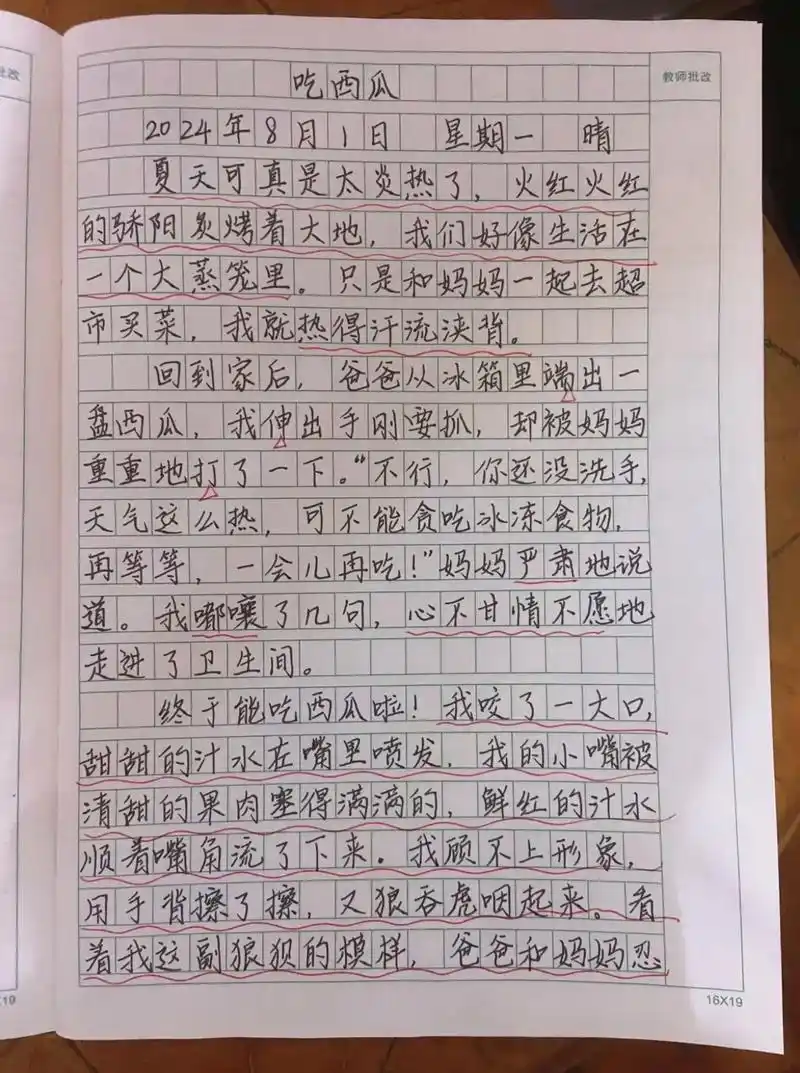 教师批改
吃西瓜
2024年8月1日 星期一 晴
夏天可真是太炎热了，火红火红
的骄阳炙烤着大地，我们好像生活在
一个大蒸笼里。只是和妈妈一起去超
市买菜，我就热得汗流浃背。
回到家后，爸爸从冰箱里端出一
盘西瓜，我伸出手刚要抓，却被妈妈
重重地打了一下。“不行，你还没洗手，
天气这么热，可不能贪吃冰冻食物，
再等等，一会儿再吃！”妈妈严肃地说
道。我嘟囔了几句，心不甘情不愿地
走进了卫生间。
终于能吃西瓜啦！我咬了一大口，
甜甜的汁水在嘴里喷发，我的小嘴被
清甜的果肉塞得满满的，鲜红的汁水
顺着嘴角流了下来。我顾不上形象，
用手背擦了擦，又狼吞虎咽起来。看
着我这副狼狈的模样，爸爸和妈妈忍
16X19